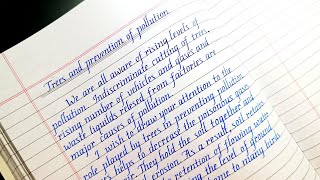 Trees and prevention of pollution
We are all aware of rising levels of
pollution. Indiscriminate cutting of trees,
rising number of vehicles and gases and
waste liquids relesed from factories are
major causes of pollution.
I wish to draw your attention to the
role played by trees in preventing pollution.
Trees helps to decrease the poisonous gases
They hold the soil together and
erosion. As a result, soil retain
retention of flowing water
the level of ground
come to many birds